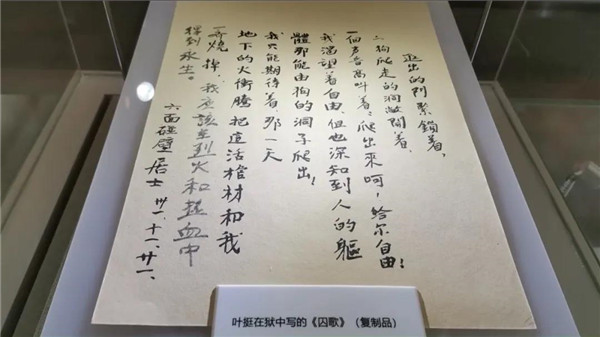 出的門緊鎖着,
狗爬走的洞敞開着,
一個声音高叫着:爬出來呵,給尔自由!
我渴望着自由,但也深知到人的軀
體那能由狗的洞子爬出!
我只能期待着,那一天
地下的火衝騰把這活棺材和我
一齊燒掉,我应該在烈火和热血中
得到永生。
六面碰壁居士 卅一.十一.廿一.
叶挺在狱中写的《囚歌》(复制品)